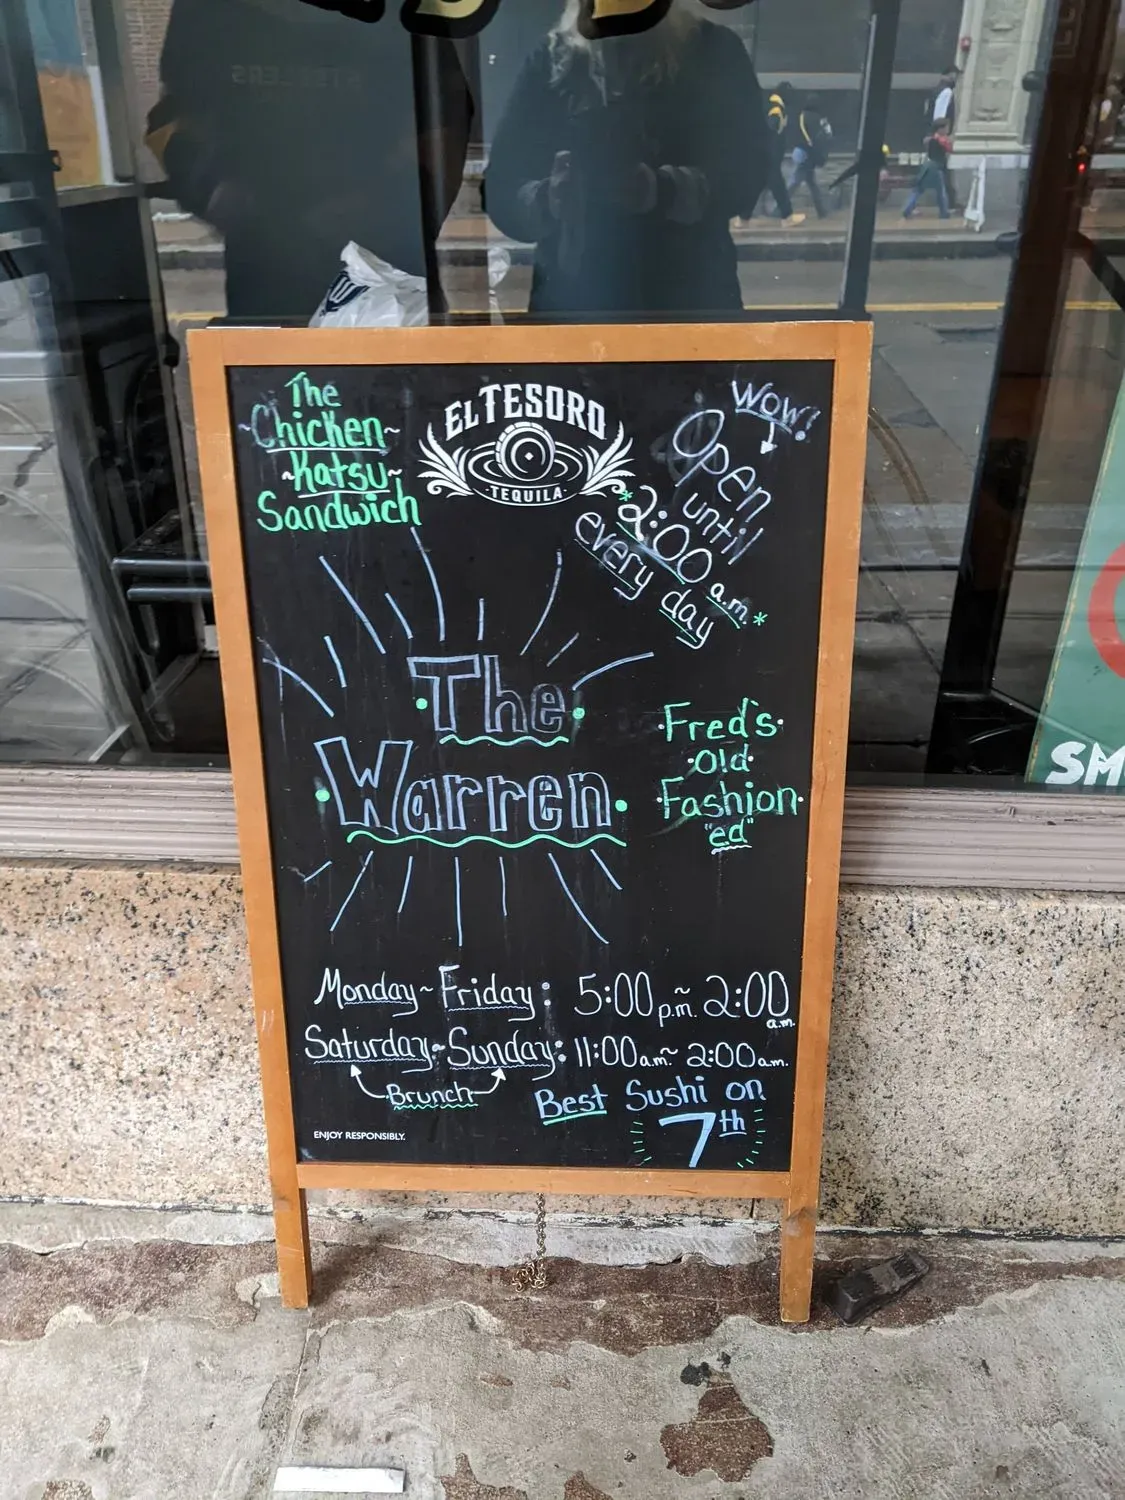 The
~Chicken~
~Katsu~
Sandwich
EL TESORO
·TEQUILA·
Wow!
Open
until
*2:00 a.m.*
every day
The
Warren
·Fred's·
·Old·
·Fashion·
"ed"
Monday~Friday: 5:00 p.m.~2:00 a.m.
Saturday~Sunday: 11:00 a.m.~2:00 a.m.
Brunch
Best Sushi on
7th
ENJOY RESPONSIBLY.
STEELERS
SM